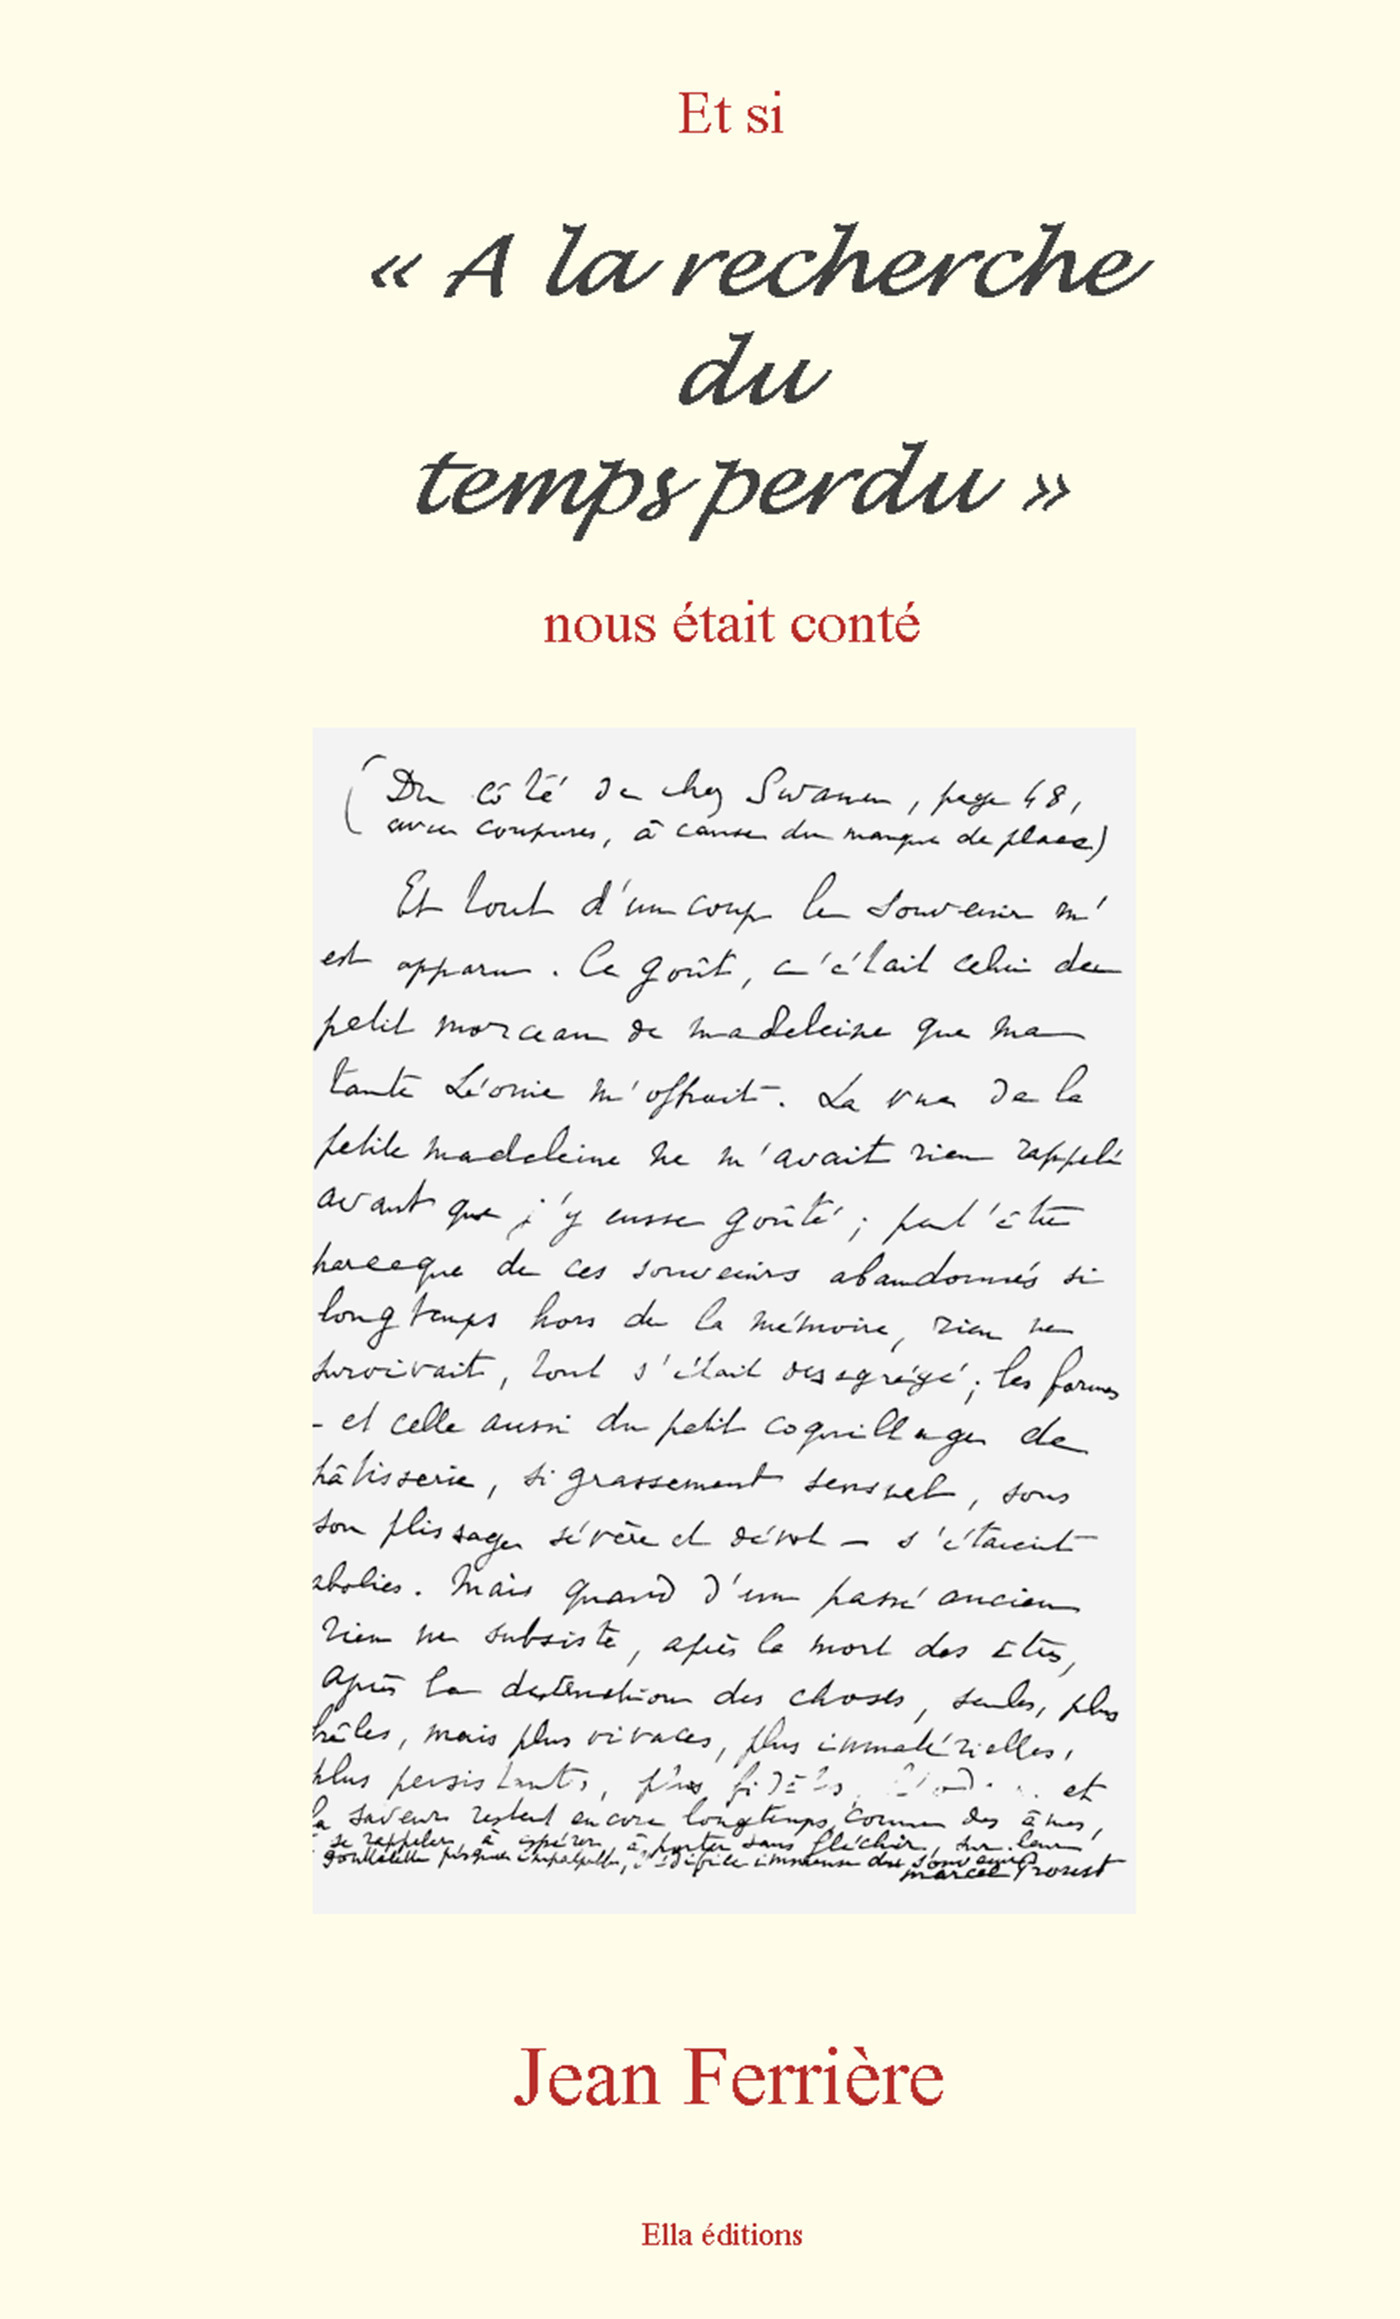 Et si
« A la recherche
du
temps perdu »
nous était conté
(Du côté de chez Swann, page 48,
avec coupures, à cause du manque de place)
Et tout d'un coup le souvenir m'
est apparu. Ce goût, c'était celui du
petit morceau de madeleine que ma
tante Léonie m'offrait. La vue de la
petite madeleine ne m'avait rien rappelé
avant que j'y eusse goûté ; peut'être
parceque de ces souvenirs abandonnés si
longtemps hors de la mémoire, rien ne
survivait, tout s'était désagrégé ; les formes
- et celle aussi du petit coquillage de
pâtisserie, si grassement sensuel, sous
son plissage sévère et dévot — s'étaient
abolies. Mais quand d'un passé ancien
rien ne subsiste, après la mort des êtres,
après la destruction des choses, seules, plus
frêles, mais plus vivaces, plus immatérielles,
plus persistantes, plus fidèles, et
la saveur restent encore longtemps, comme des âmes,
à se rappeler, à espérer, à porter sans fléchir, sur leur
gouttelette presque impalpable, l'édifice immense du souvenir
Marcel Proust
Jean Ferrière
Ella éditions